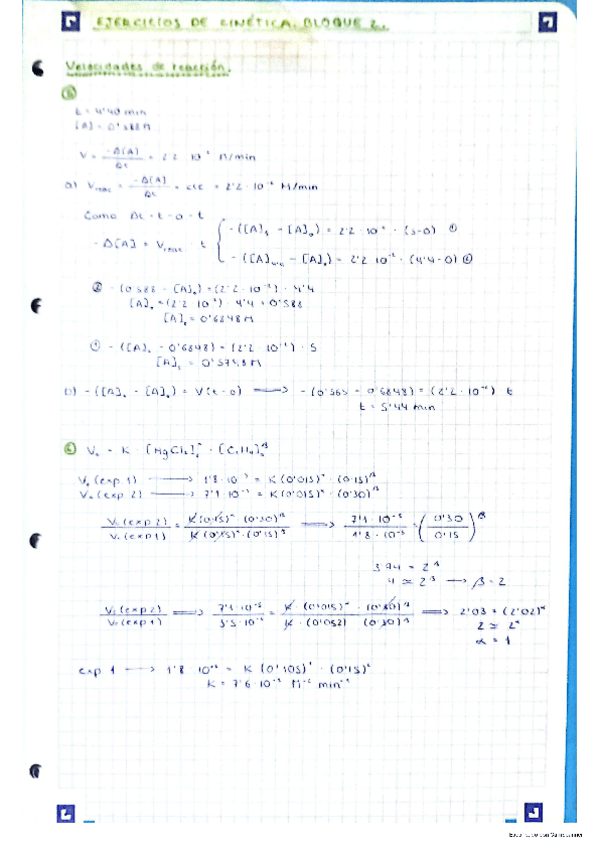 EJERCICIOS DE CINÉTICA. BLOQUE 2.
Velocidades de reacción.
t = 4'40 min
[A] = 0'588 M
V = -Δ[A]/Δt = 2'2 · 10⁻² M/min
a) V = -Δ[A]/Δt = cte = 2'2 · 10⁻² M/min
Como Δt = t - 0 = t
-Δ[A] = V · t
-([A]₅ - [A]₀) = 2'2 · 10⁻² · (5-0) ①
-([A] - [A]₀) = 2'2 · 10⁻² · (4'4-0) ②
② -(0'588 - [A]₀) = (2'2 · 10⁻²) · 4'4
[A]₀ = (2'2 · 10⁻²) · 4'4 + 0'588
[A]₀ = 0'6848 M
① -([A]₅ - 0'6848) = (2'2 · 10⁻²) · 5
[A]₅ = M
b) -([A] - [A]₀) = V(t-0) ⟹ -(0'565 - 0'6848) = (2'2 · 10⁻²) t
t = 5'44 min
V₀ = K · [HgCl₂]
V₀ (exp 1) → 1'8 · 10⁻⁵ = K (0'105)ᵅ · (0'15)ᵝ
V₀ (exp 2) → 7'1 · 10⁻⁵ = K (0'105)ᵅ · (0'30)ᵝ
V₀ (exp 2)/V₀ (exp 1) = K (0'105)ᵅ (0'30)ᵝ/K (0'105)ᵅ (0'15)ᵝ ⟹ 7'1 · 10⁻⁵/1'8 · 10⁻⁵ = (0'30/0'15)ᵝ
3'94 = 2ᵝ
4 ≃ 2ᵝ → β = 2
V₀ (exp 2) ⟹ 7'1 · 10⁻⁵/3'5 · 10⁻⁵ = K · (0'105)ᵅ · (0'30)ᵝ/K · (0'052) (0'30)ᵝ ⟹ 2'03 = (2'02)ᵅ
2 ≃ 2ᵅ
α = 1
exp 1 → 1'8 · 10⁻⁵ = K (0'105)¹ · (0'15)²
K = 7'6 · 10⁻³ M⁻² min⁻¹